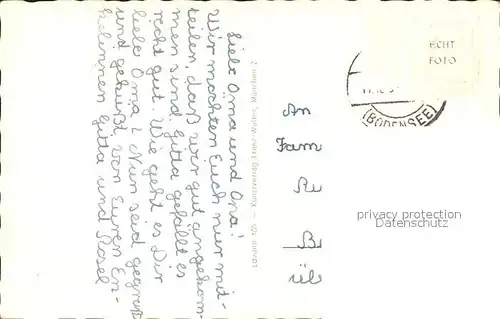 Liebe Oma und Opa!
Wir möchten Euch nur mit-
teilen, daß wir gut angekom-
men sind. Gitta gefällt es
recht gut. Wie geht es Dir
liebe Oma? Nun seid gegrüßt
und geküßt von Euren En-
kelinnen Gitta und Rosel
ECHT
FOTO
(BODENSEE)
An
Fam
privacy protection
Datenschutz